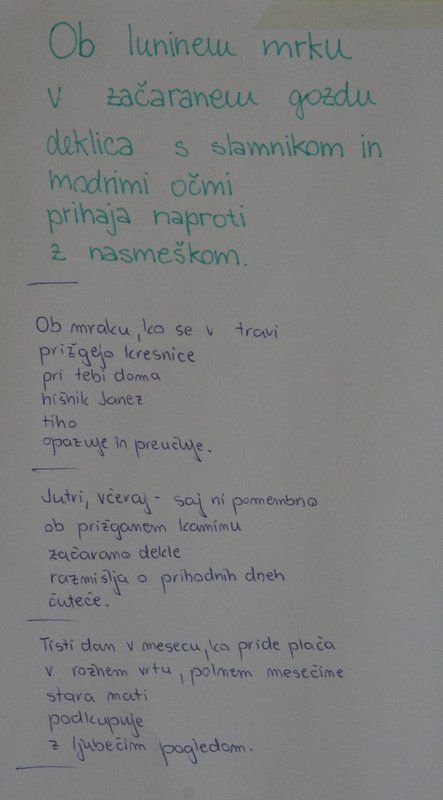 Ob luninem mrku
v začaranem gozdu
deklica s slamnikom in
modrimi očmi
prihaja naproti
z nasmeškom.
Ob mraku, ko se v travi
prižgejo kresnice
pri tebi doma
hišnik Janez
tiho
opazuje in preučuje.
Jutri, včeraj - saj ni pomembno
ob prižganem kaminu
začarano dekle
razmišlja o prihodnih dneh
čuteče.
Tisti dan v mesecu, ko pride plača
v rožnem vrtu, polnem mesečine
stara mati
podkupuje
z ljubečim pogledom.